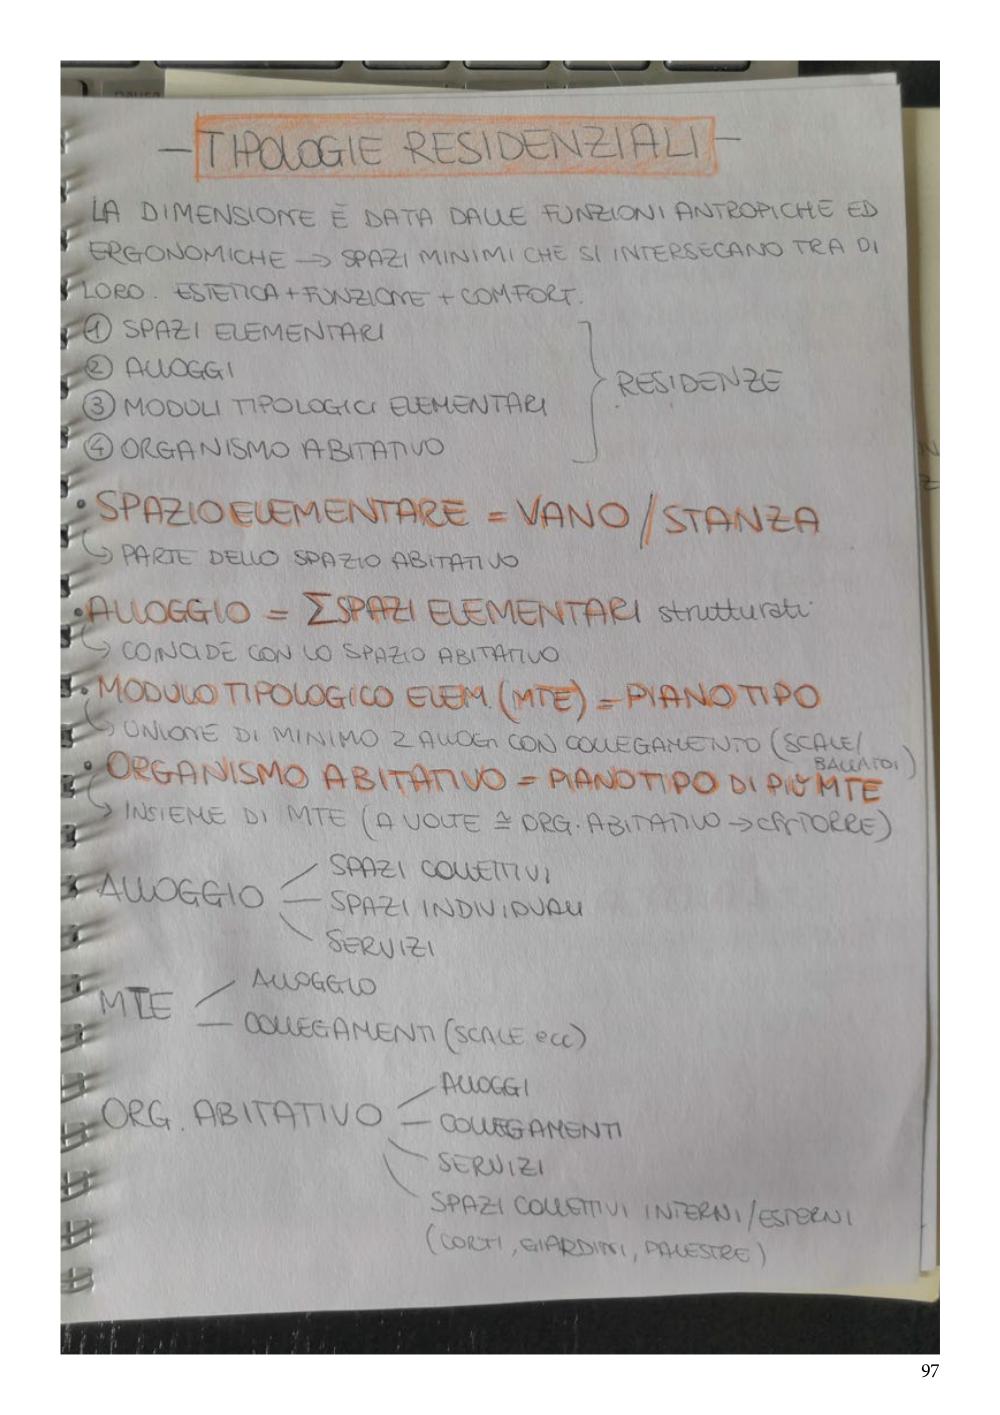 — TIPOLOGIE RESIDENZIALI —
LA DIMENSIONE È DATA DALLE FUNZIONI ANTROPICHE ED
ERGONOMICHE → SPAZI MINIMI CHE SI INTERSECANO TRA DI
LORO. ESTETICA + FUNZIONE + COMFORT.
① SPAZI ELEMENTARI
② ALLOGGI
③ MODULI TIPOLOGICI ELEMENTARI
④ ORGANISMO ABITATIVO
RESIDENZE
• SPAZIO ELEMENTARE = VANO / STANZA
↳ PARTE DELLO SPAZIO ABITATIVO
• ALLOGGIO = ∑ SPAZI ELEMENTARI strutturati
↳ COINCIDE CON LO SPAZIO ABITATIVO
• MODULO TIPOLOGICO ELEM. (MTE) = PIANO TIPO
↳ UNIONE DI MINIMO 2 ALLOGI CON COLLEGAMENTO (SCALE/
BALLATOI)
• ORGANISMO ABITATIVO = PIANO TIPO DI PIÙ MTE
↳ INSIEME DI MTE (A VOLTE ≅ ORG. ABITATIVO → TORRE)
ALLOGGIO
SPAZI COLLETTIVI
SPAZI INDIVIDUALI
SERVIZI
MTE
ALLOGGIO
COLLEGAMENTI (SCALE ecc)
ORG. ABITATIVO
ALLOGGI
COLLEGAMENTI
SERVIZI
SPAZI COLLETTIVI INTERNI / ESTERNI
(CORTI, GIARDINI, PALESTRE)
97